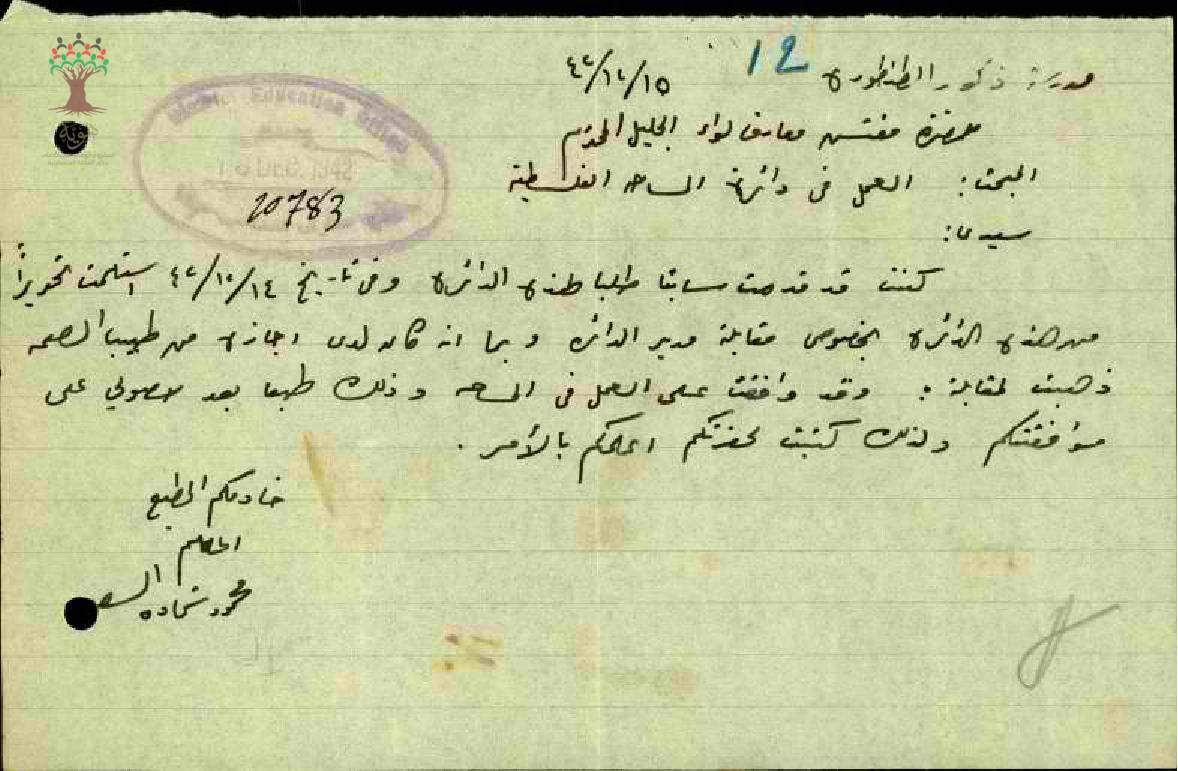 مدرسة ذكور الطنطورة ٤٢/١٠/١٥
12
حضرة مفتش معارف لواء الجليل المحترم
المبحث: العمل في دائرة المساحه الفلسطينية
سيدي:
كنت قد قدمت سابقا طلبا لهذه الدائرة وفي تاريخ ٤٢/١٠/١٤ استلمت تحريراً
من هذه الدائرة بخصوص مقابلة مدير الدائره وبما انه كان لدى اجازه من طبيب الصحه
ذهبت لمقابلة: وقد وافقت على العمل في المساحه وذلك طبعا بعد حصولي على
موافقتكم ولذلك كتبت لحضرتكم اعلمكم بالأمر.
خادمكم المطيع
المعلم
محمود شحاده
Education Office
10783